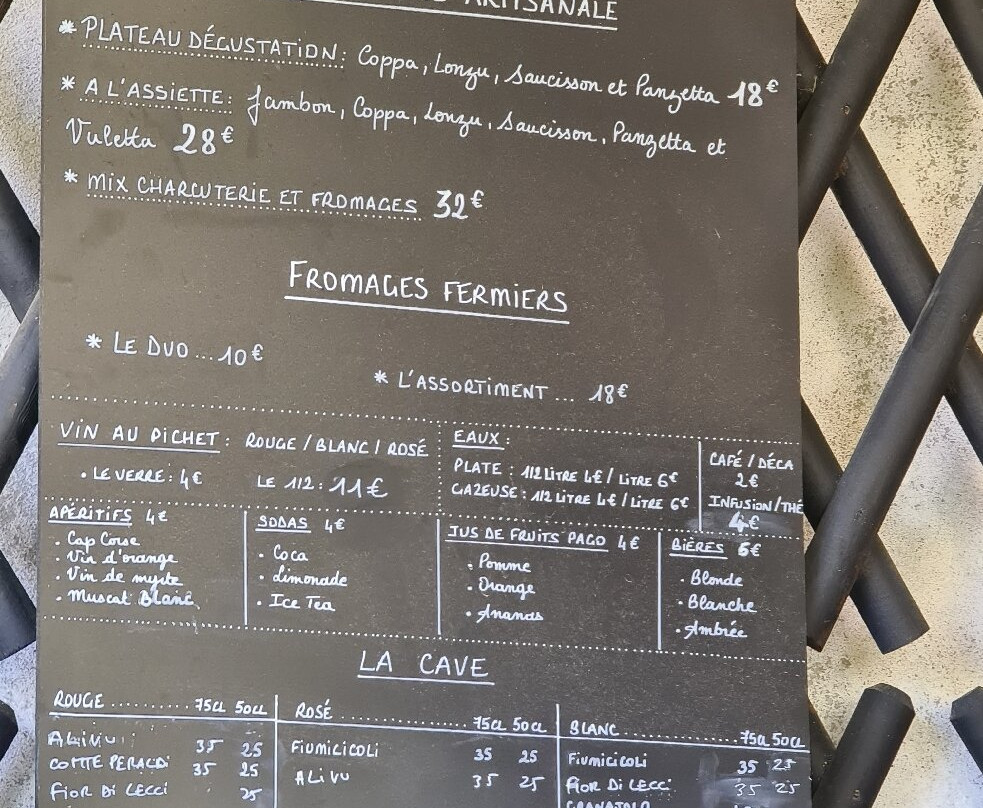 ARTISANALE
* PLATEAU DÉGUSTATION : Coppa, Lonzu, Saucisson et Panzetta 18€
* A L'ASSIETTE : Jambon, Coppa, Lonzu, Saucisson, Panzetta et
Vuletta 28€
* MIX CHARCUTERIE ET FROMAGES 32€
FROMAGES FERMIERS
* LE DUO ... 10€
* L'ASSORTIMENT ... 18€
VIN AU PICHET : ROUGE / BLANC / ROSÉ
• LE VERRE : 4€ LE 1/2 : 11€
EAUX :
PLATE : 1/2 LITRE 4€ / LITRE 6€
GAZEUSE : 1/2 LITRE 4€ / LITRE 6€
CAFÉ / DÉCA
2€
INFUSION/THÉ
4€
APÉRITIFS 4€
• Cap Corse
• Vin d'orange
• Vin de myrte
• Muscat Blanc
SODAS 4€
• Coca
• Limonade
• Ice Tea
JUS DE FRUITS PAGO 4€
• Pomme
• Orange
• Ananas
BIÈRES 6€
• Blonde
• Blanche
• Ambrée
LA CAVE
ROUGE .......... 75CL 50CL
ALIVU 35 25
COMTE PERALDI 35 25
FIOR DI LECCI 25
ROSÉ .......... 75CL 50CL
FIUMICICOLI 35 25
ALIVU 35 25
BLANC .......... 75CL 50CL
FIUMICICOLI 35 25
FIOR DI LECCI 35 25
GRANAJOLO